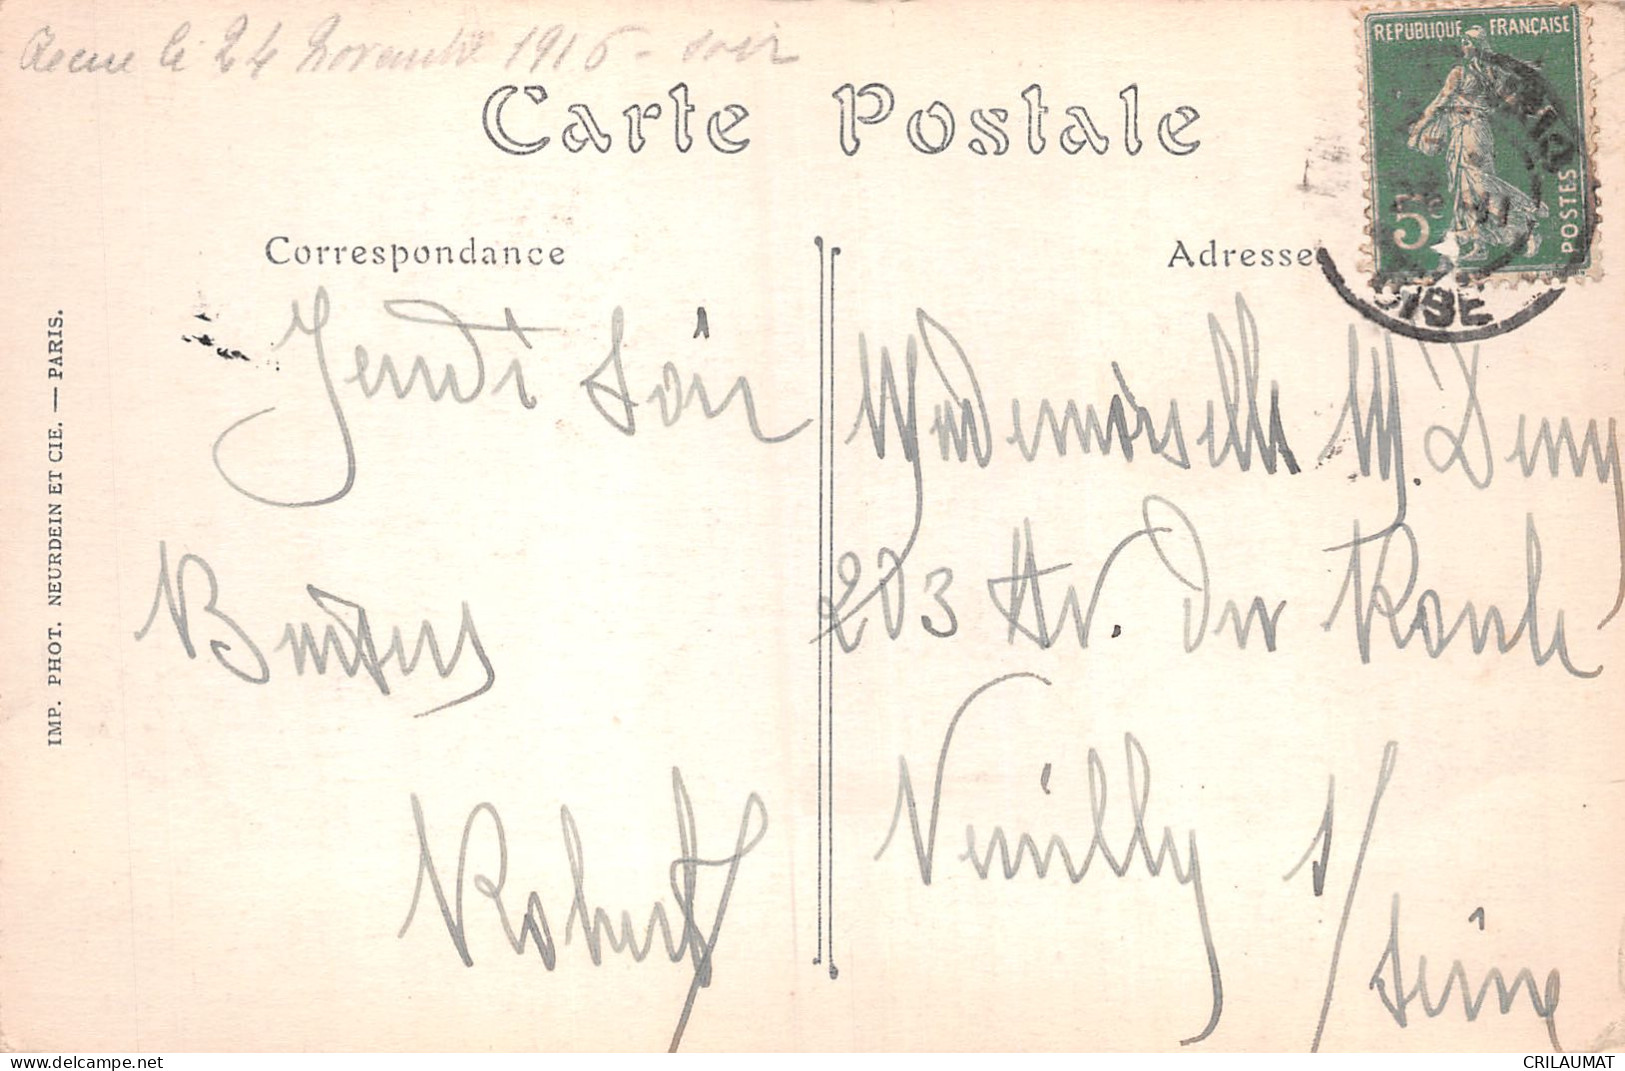 Recue le 24 Novembre 1916 - soir
Carte Postale
REPUBLIQUE FRANÇAISE
5c
POSTES
Correspondance
Adresse
Jeudi soir
Baisers
Robert
Mademoiselle M. Deny
203 Av. du Roule
Neuilly s/
Seine
IMP. PHOT. NEURDEIN ET CIE. — PARIS.
delcampe.net
CRILAUMAT